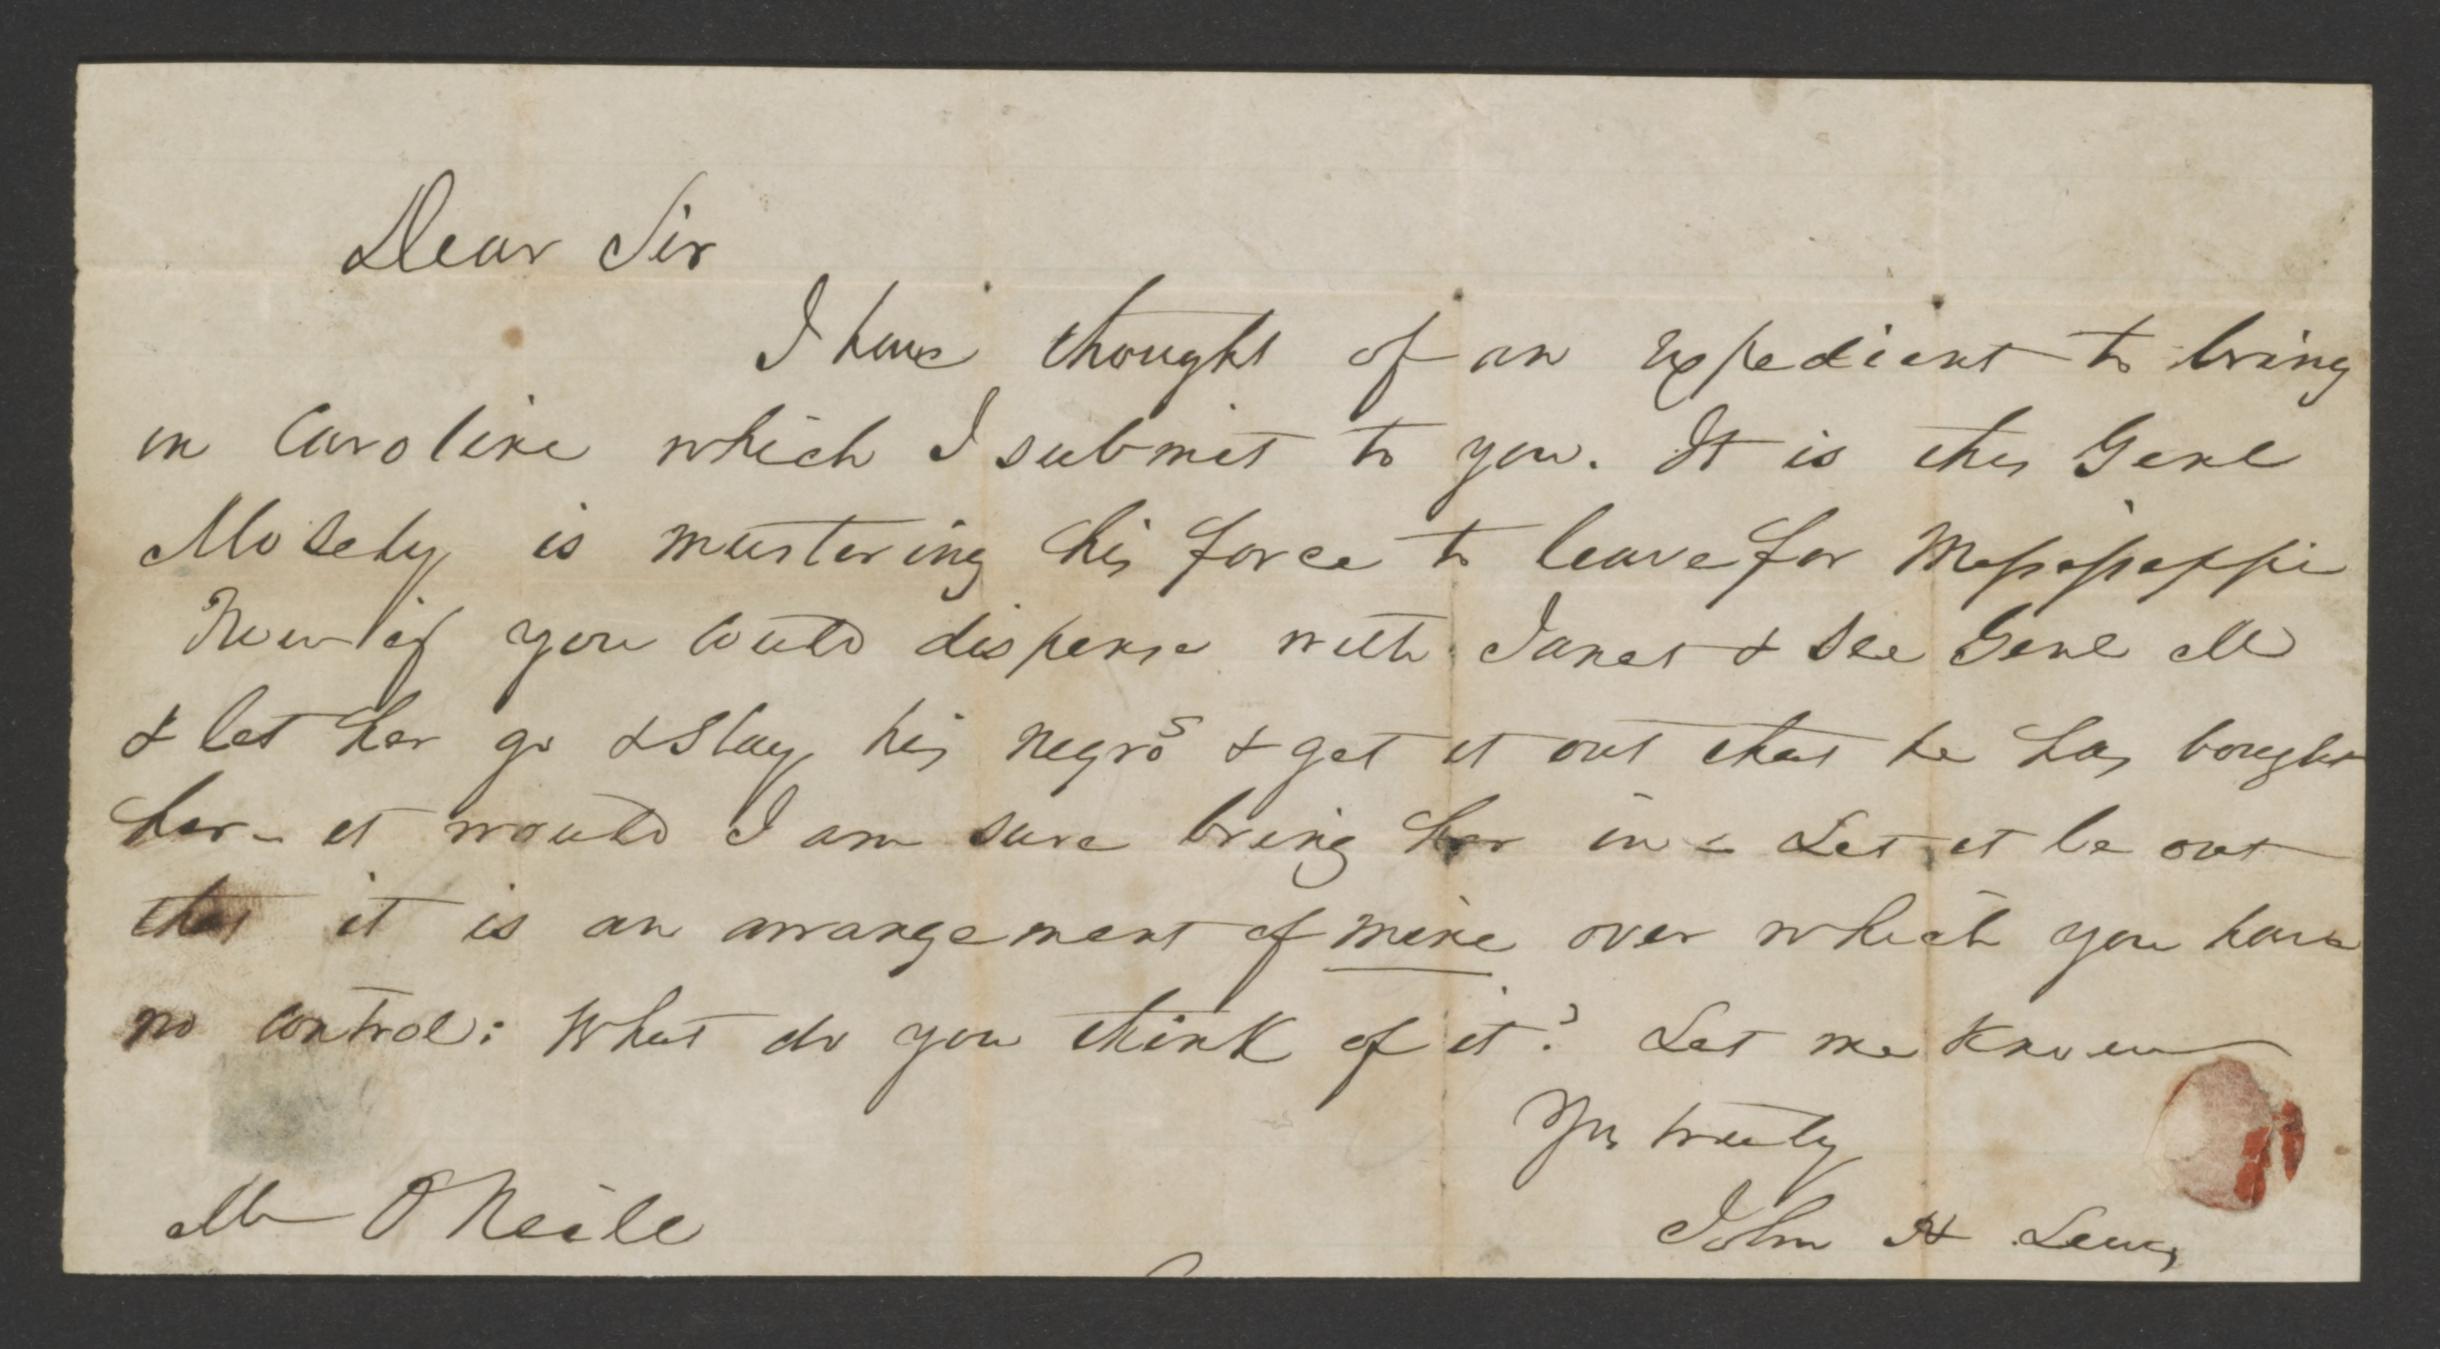 Dear Sir
I have thought of an expedient to bring
in Caroline which I submit to you. It is this Genl
Mosely is mustering his force to leave for Mississippi
Now if you could dispense with Janet & see Genl M
& let her go & stay his negros & get it out that he has bought
her - it would I am sure bring her in - Let it be out
that it is an arrangement of mine over which you have
no control: What do you think of it? Let me know
Yrs truly
John H Lewis
Mr O'Neile